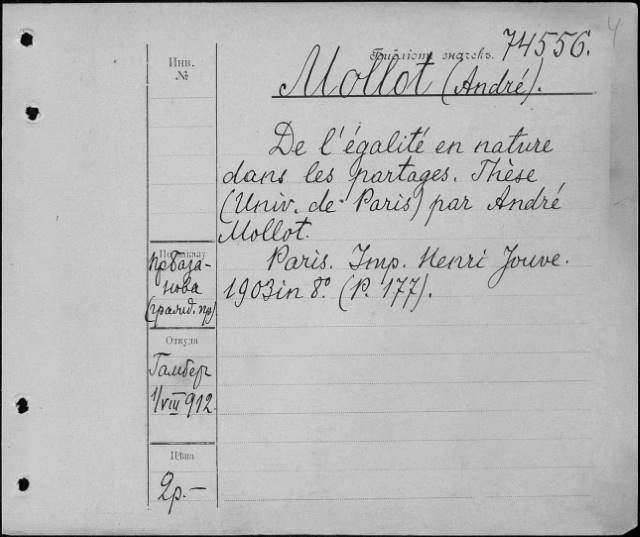 4
Библіот. значекъ. 74556.
Инв.
№
Mollot (André).
De l'égalité en nature
dans les partages. Thèse
(Univ. de Paris) par André
Mollot.
Paris. Imp. Henri Jouve.
1903 in 8º. (P. 177).
По заказу
пр. База-
нова
(гражд. пр).
Откуда
Гамбер
1/VIII 912.
Цѣна
2р.—